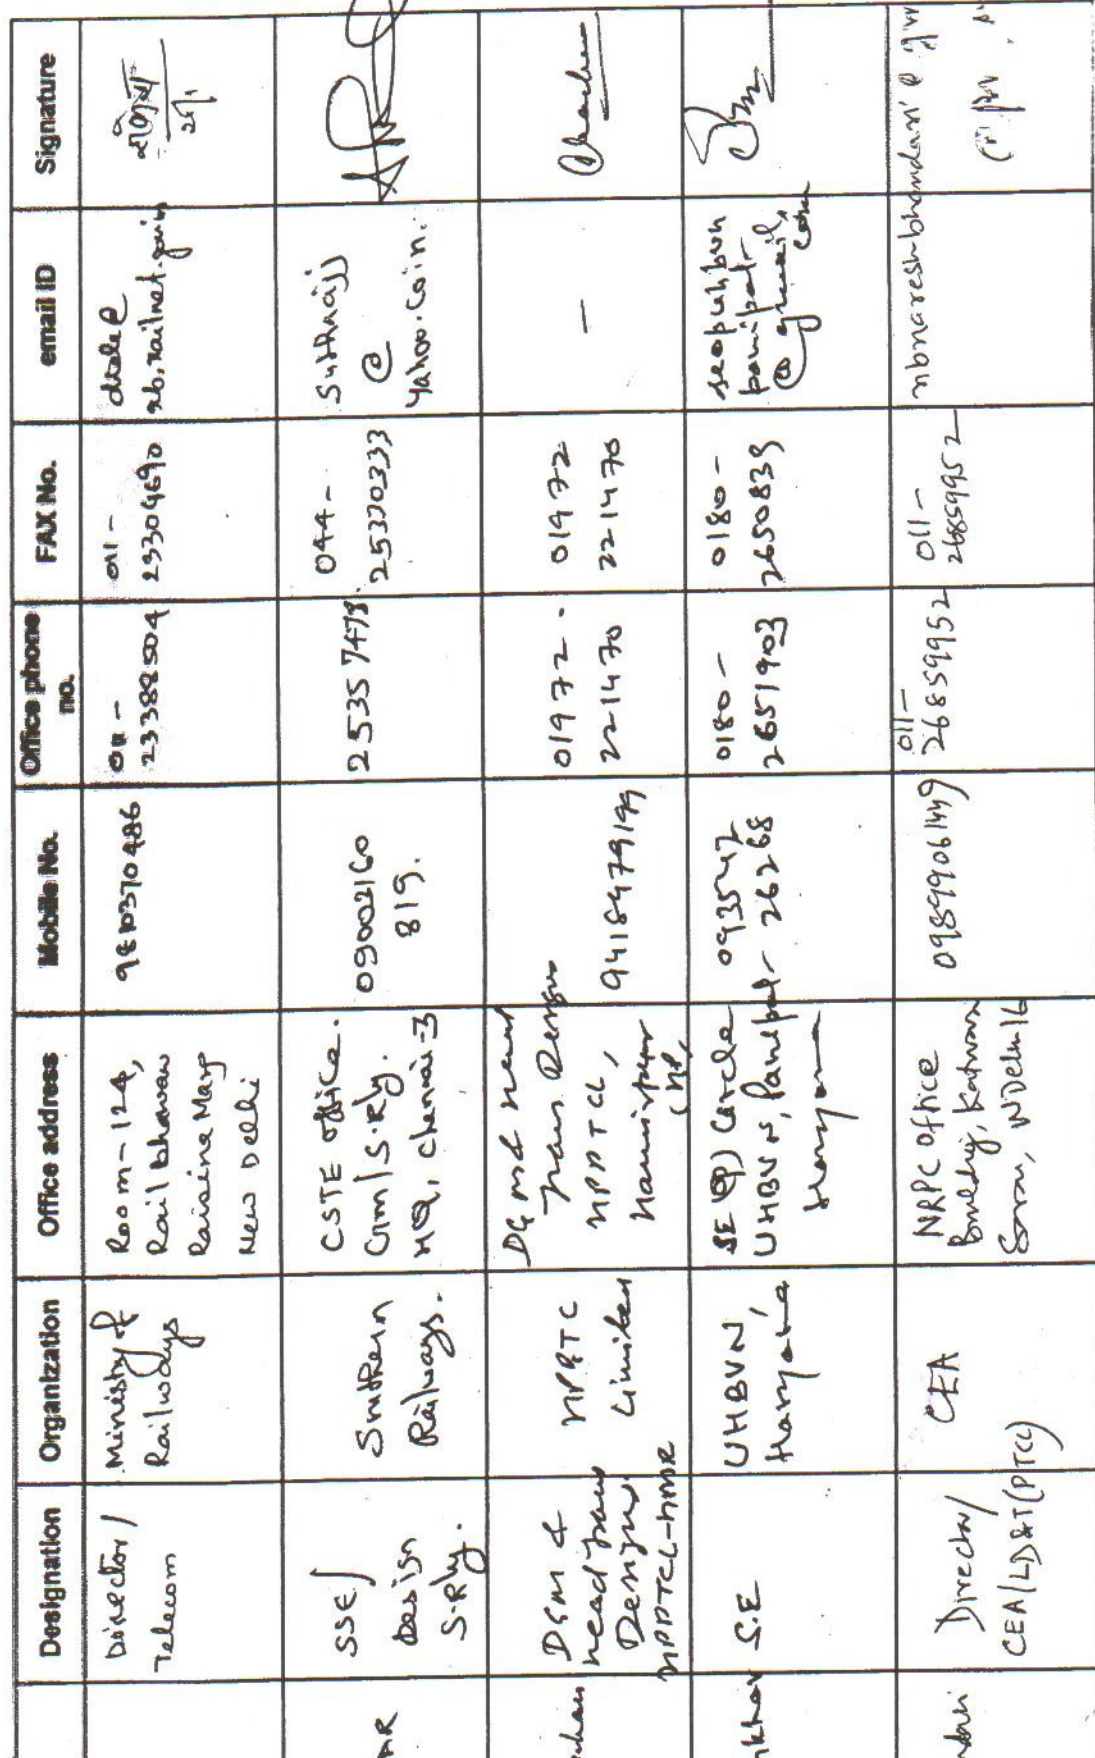 Designation Organization Office address Mobile No. Office phone no. FAX No. email ID Signature
Director/
Telecom
Ministry of
Railways
Room-124,
Rail bhawan
Raisina Marg
New Delhi
9810370486
011-
23388504
011-
23304690
rb.railnet.gov.in
AR
SSE/
Design
S.Rly.
Southern
Railways.
CSTE office.
Gm/S.Rly.
HQ, Chennai-3
09002160
819.
25357478.
044-
25370333
@
yahoo.co.in.
Design
Limited
HPPTCL,
Hamirpur
(HP)
9418479199
01972-
221470
01972
221470
-
S.E
UHBVN,
Haryana
SE (OP) Circle
UHBVN, Panipat
Haryana
093547
26268
0180-
2651903
0180-
2650839
panipat
@gmail.
com
Director/
CEA (LD&T (PTCC)
CEA
NRPC Office
Building, Katwaria
Sarai, NDelhi 16
09899061449
011-
26859952
011-
26859952
nbnareshbhandari@